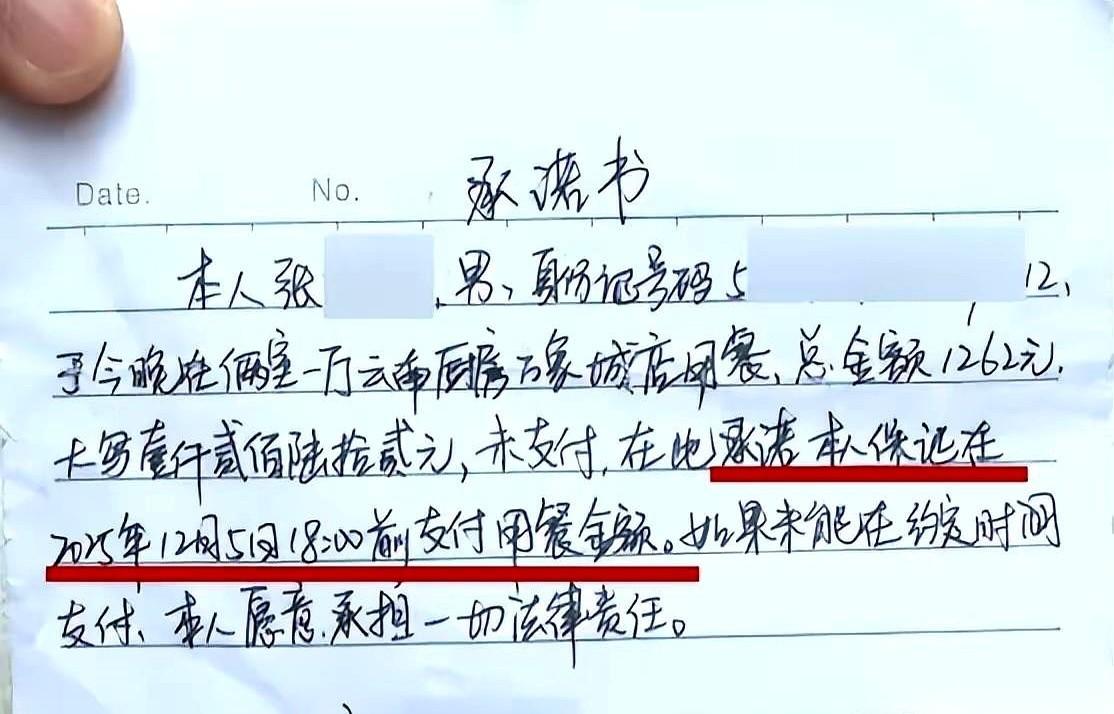 Date. No. 承诺书
本人张 ,男,身份证号码5 12,
于今晚在俩室一厅云南厨房万象城店用餐,总金额1262元,
大写壹仟贰佰陆拾贰元,未支付,在此承诺本人保证在
2025年12月5日18:00前支付用餐金额。如果未能在约定时间
支付、本人愿意承担一切法律责任。